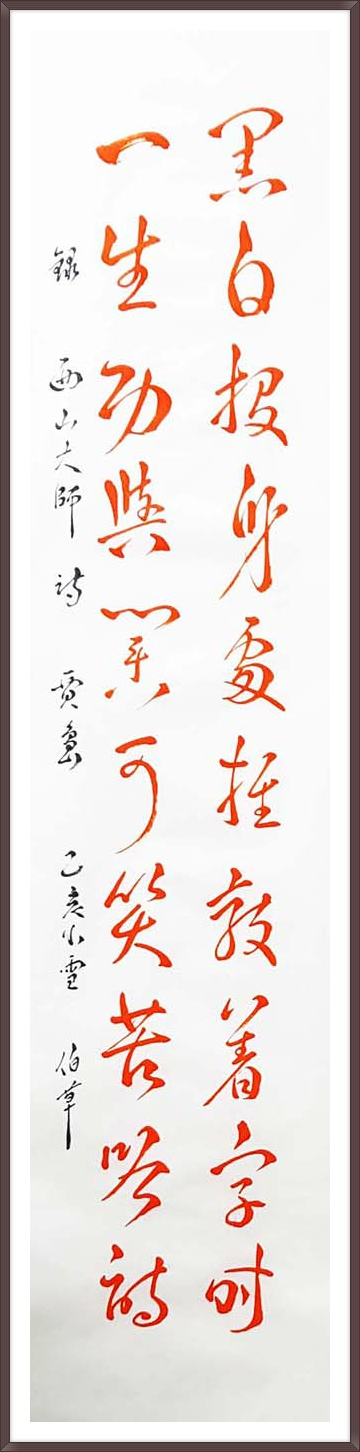 黑白投身處推敲着字時
一生功與業可笑苦吟詩
録 西山大師 詩 賈島 己亥小雪 伯草